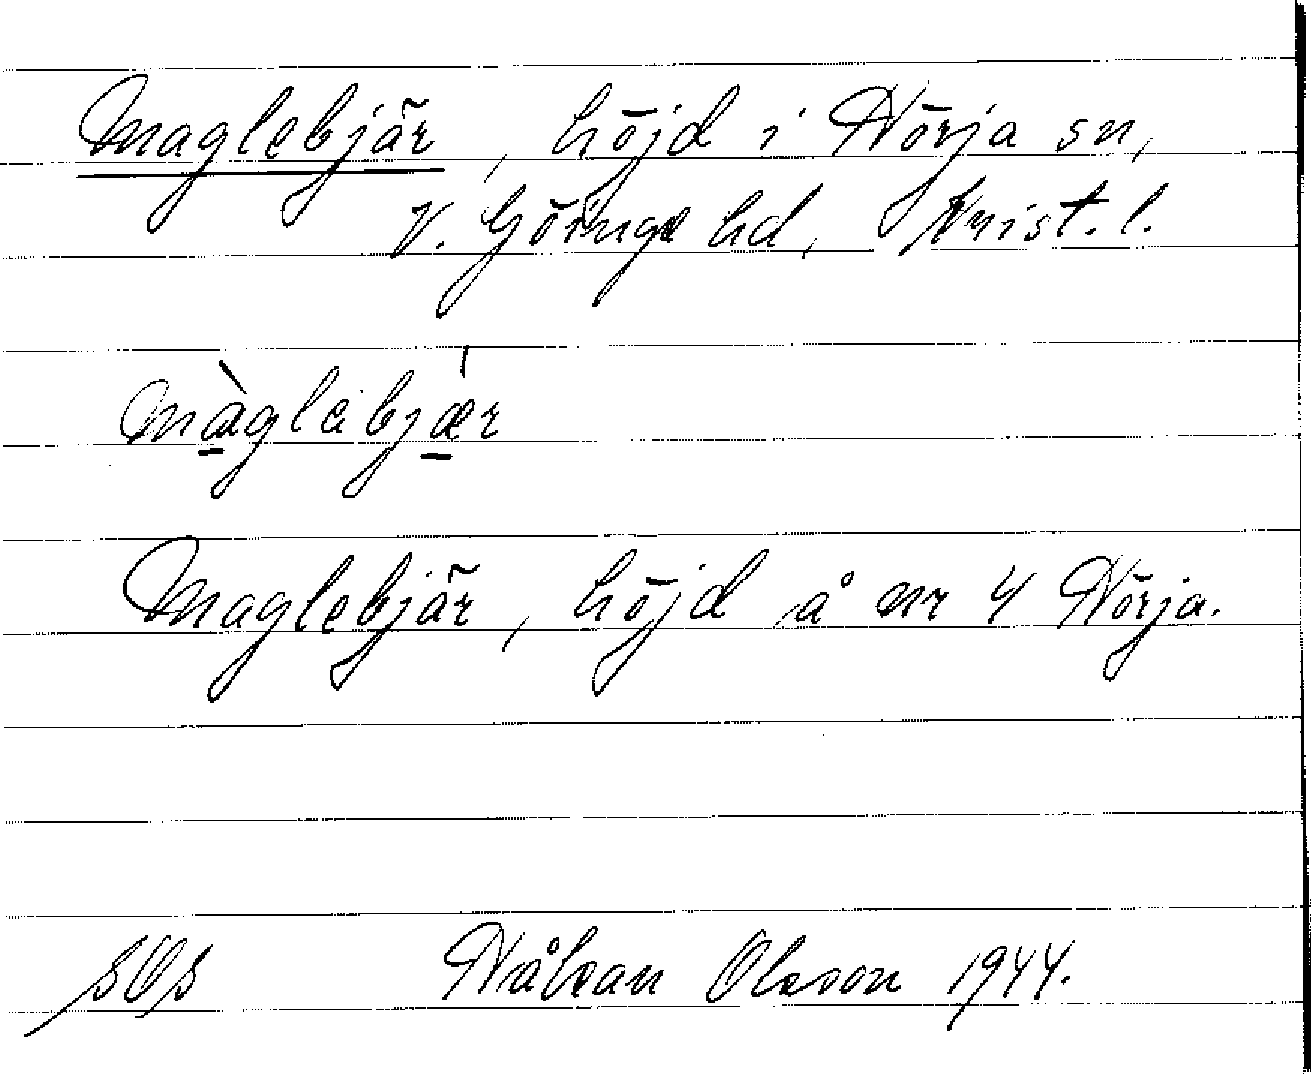 Maglebjär, höjd i Nörja sn,
V. Göinge hd, Krist. l.
màglebjǽr
Maglebjär, höjd å nr 4 Nörja.
Olsson 1944.